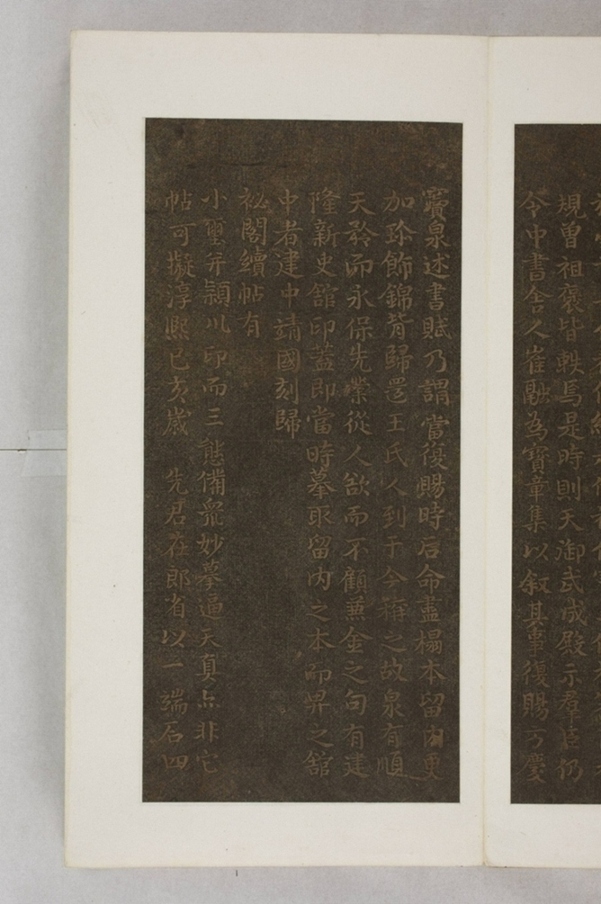 令中書舍人崔融為寶章集以叙其事復賜方慶
規曾祖褒皆軼焉是時則天御武成殿示羣臣仍
竇泉述書賦乃謂當復賜時后命盡榻本留内更
加珍飾錦背歸還王氏人到于今稱之故泉有順
天矜而永保先業從人欲而不顧蒹金之句有建
隆新史舘印葢即當時摹取留内之本而畀之舘
中者建中靖國刻歸
祕閣續帖有
小璽并頴川印而三態備衆妙摹逼天真亦非它
帖可擬淳熈已亥歲 先君在郎省以一端石四